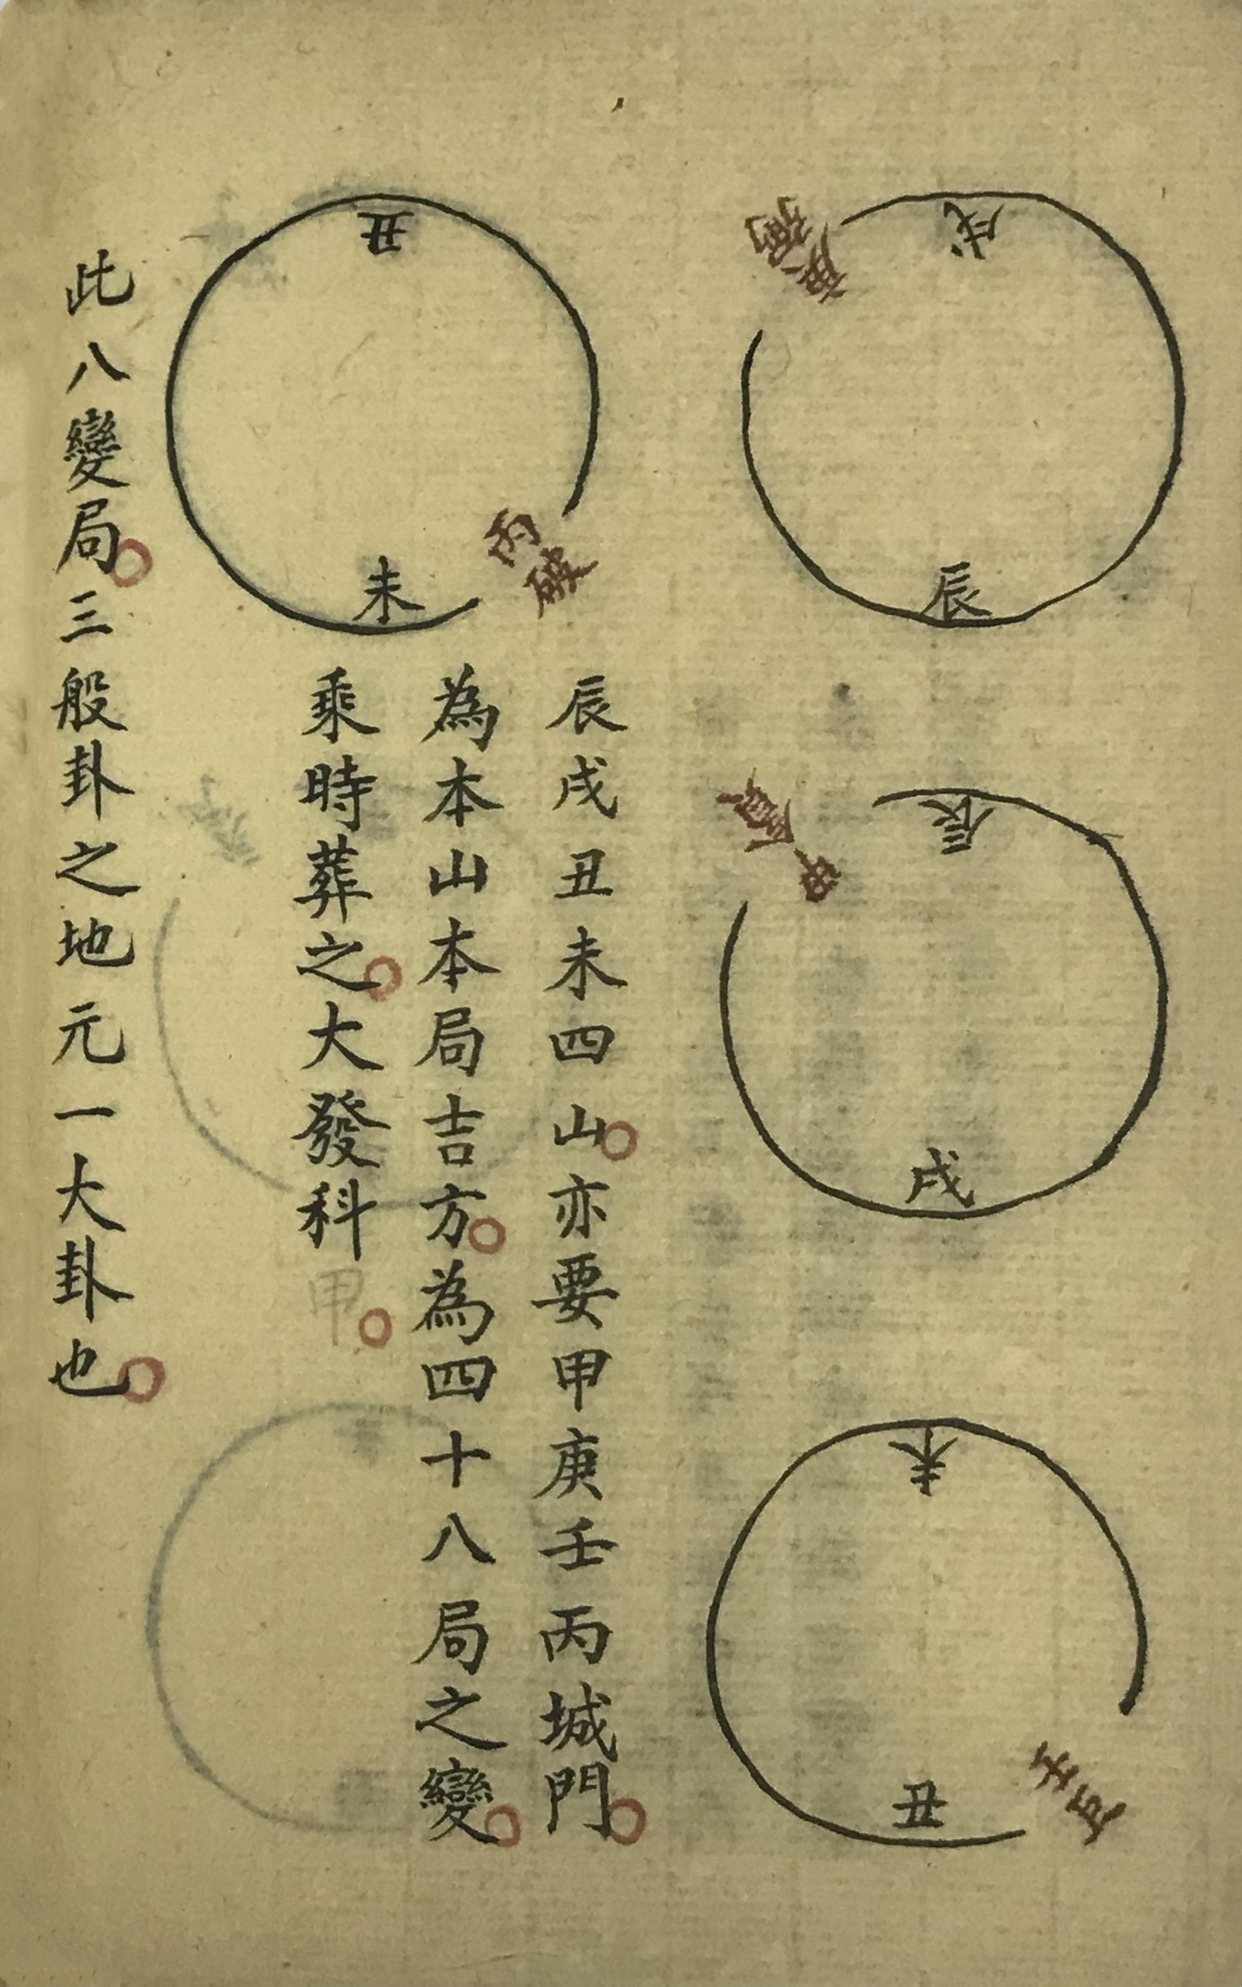 戌
庚弼
辰
辰
甲貪
戌
未
丑
壬巨
丑
未
丙破
辰戌丑未四山亦要甲庚壬丙城門
為本山本局吉方為四十八局之變
乘時葬之大發科甲
此八變局三般卦之地元一大卦也